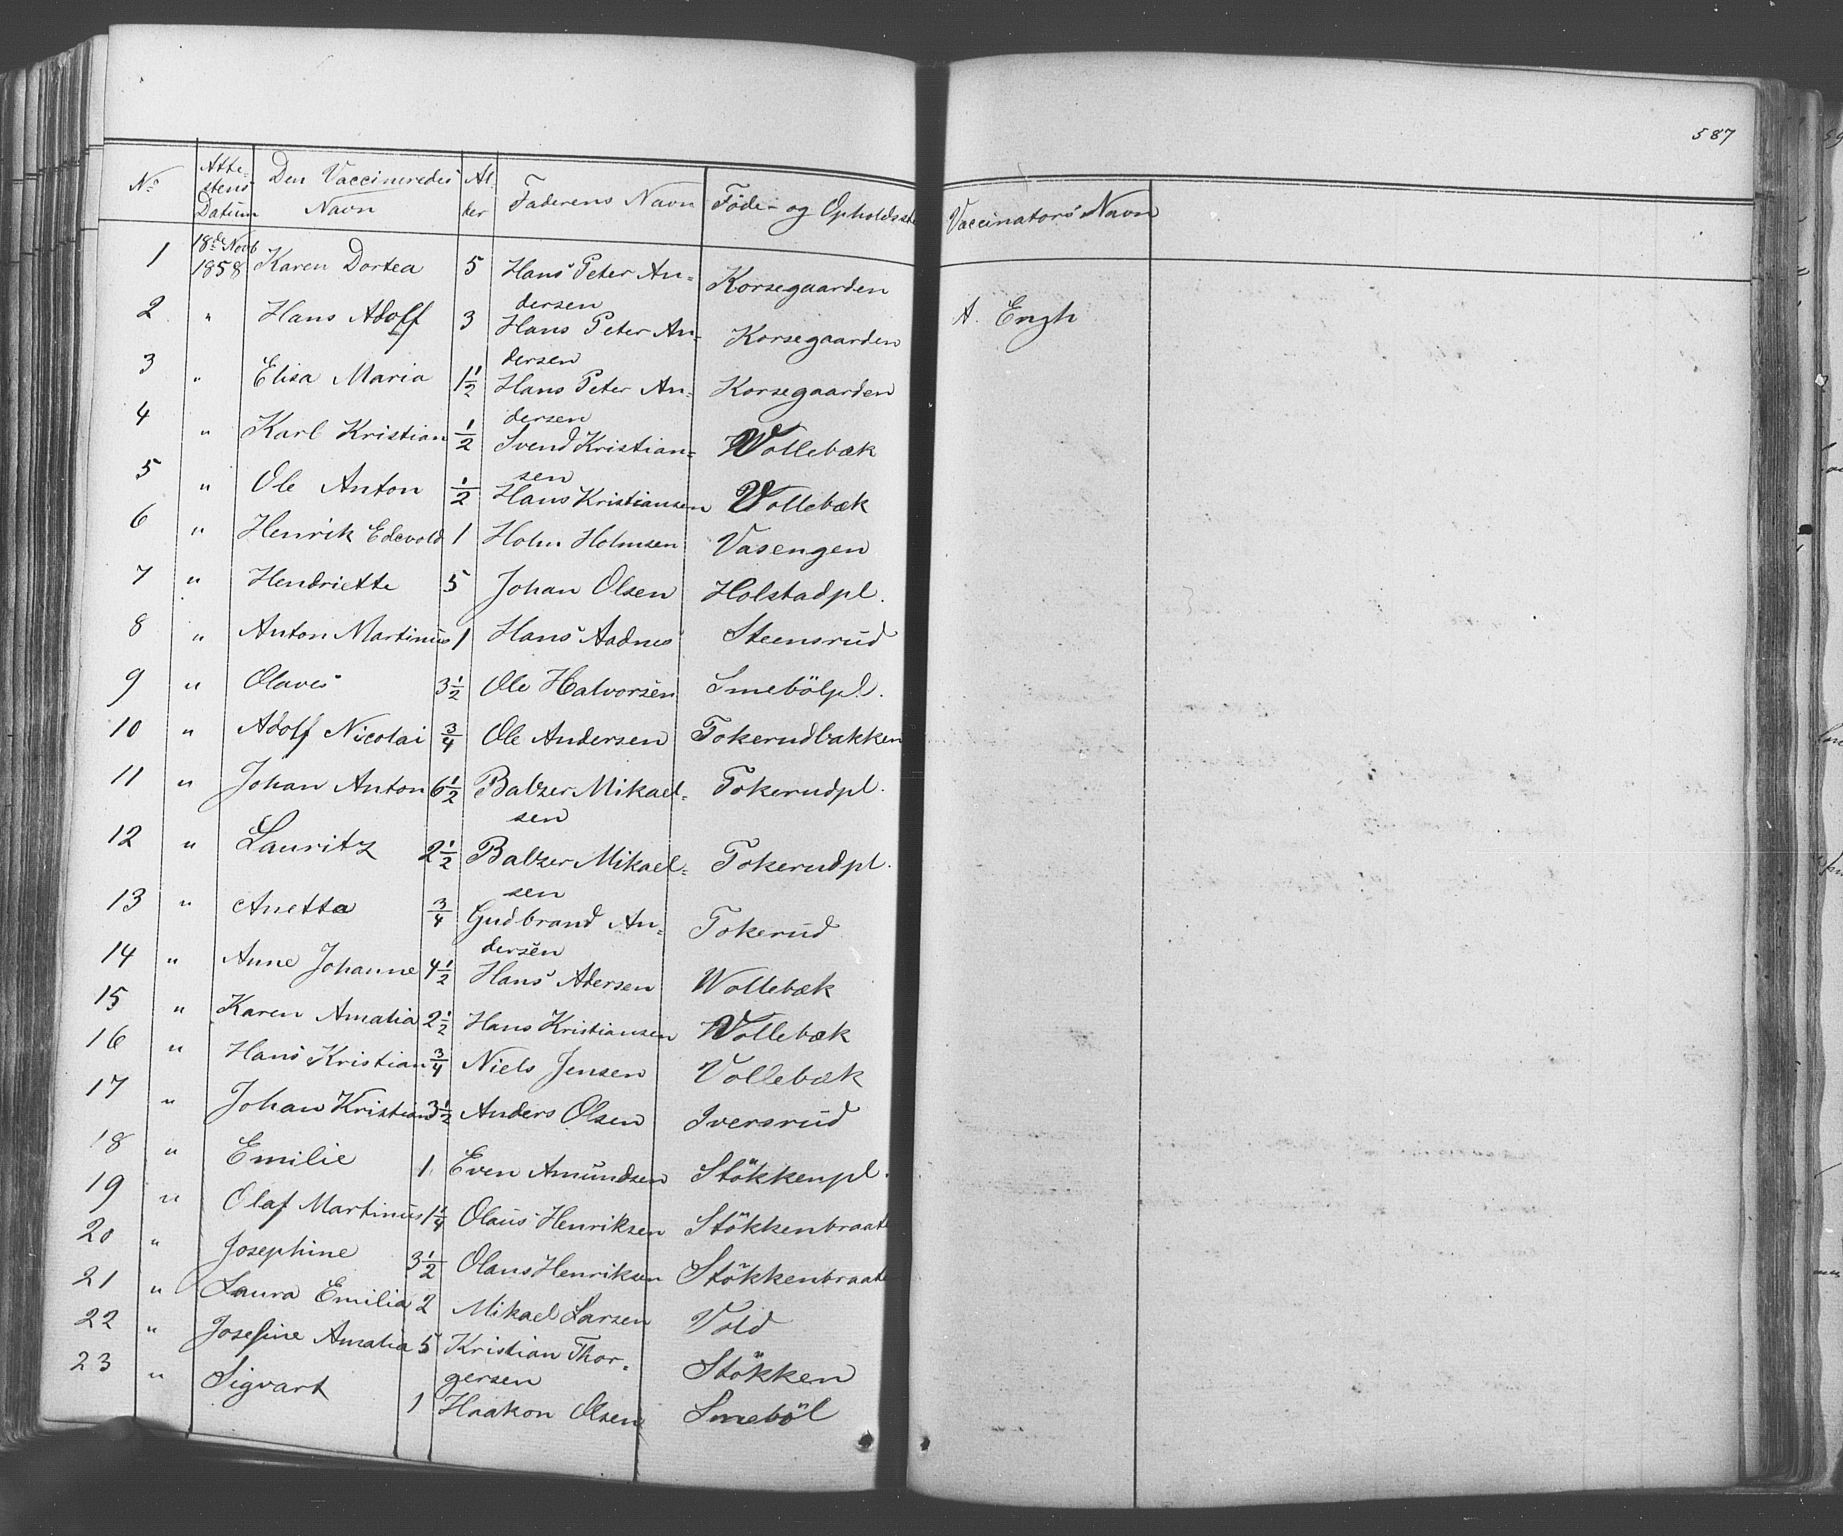 587
No | Attestens Datum | Den Vaccineredes Navn | Alder | Faderens Navn | Föde- og Opholdsste | Vaccinators Navn
1 | 18de Novb 1858 | Karen Dortea | 5 | Hans Peter Andersen | Korsegaarden
2 | " | Hans Adolf | 3 | Hans Peter Andersen | Korsegaarden | A. Engh
3 | " | Elisa Maria | 1 1/2 | Hans Peter Andersen | Korsegaarden
4 | " | Karl Kristian | 1/2 | Svend Kristiansen | Vollebæk
5 | " | Ole Anton | 1/2 | Hans Kristiansen | Vollebæk
6 | " | Henrik Edevold | 1 | Holm Holmsen | Vasengen
7 | " | Hendriette | 5 | Johan Olsen | Holstadpl.
8 | " | Anton Martinus | 1 | Hans Aadnes | Steensrud
9 | " | Olaves | 3 1/2 | Ole Halvorsen | Smebölpl.
10 | " | Adolf Nicolai | 3/4 | Ole Andersen | Tokerudbakken
11 | " | Johan Anton | 6 1/2 | Balzer Mikaelsen | Tokerudpl.
12 | " | Lauritz | 2 1/2 | Balzer Mikaelsen | Tokerudpl.
13 | " | Anetta | 3/4 | Gudbrand Andersen | Tokerud
14 | " | Anne Johanne | 4 1/2 | Hans Adersen | Wollebæk
15 | " | Karen Amalia | 2 1/2 | Hans Kristiansen | Vollebæk
16 | " | Hans Kristian | 3/4 | Niels Jensen | Vollebæk
17 | " | Johan Kristian | 3 1/2 | Anders Olsen | Iversrud
18 | " | Emilie | 1 | Even Amundsen | Stökkenpl.
19 | " | Olaf Martinus | 1 1/4 | Olaus Henriksen | Stökkenbraate
20 | " | Josephine | 3 1/2 | Olaus Henriksen | Stökkenbraate
21 | " | Laura Emilia | 2 | Mikael Larsen | Vold
22 | " | Josefine Amalia | 5 | Kristian Thorgersen | Stökken
23 | " | Sigvart | 1 | Haakon Olsen | Smeböl